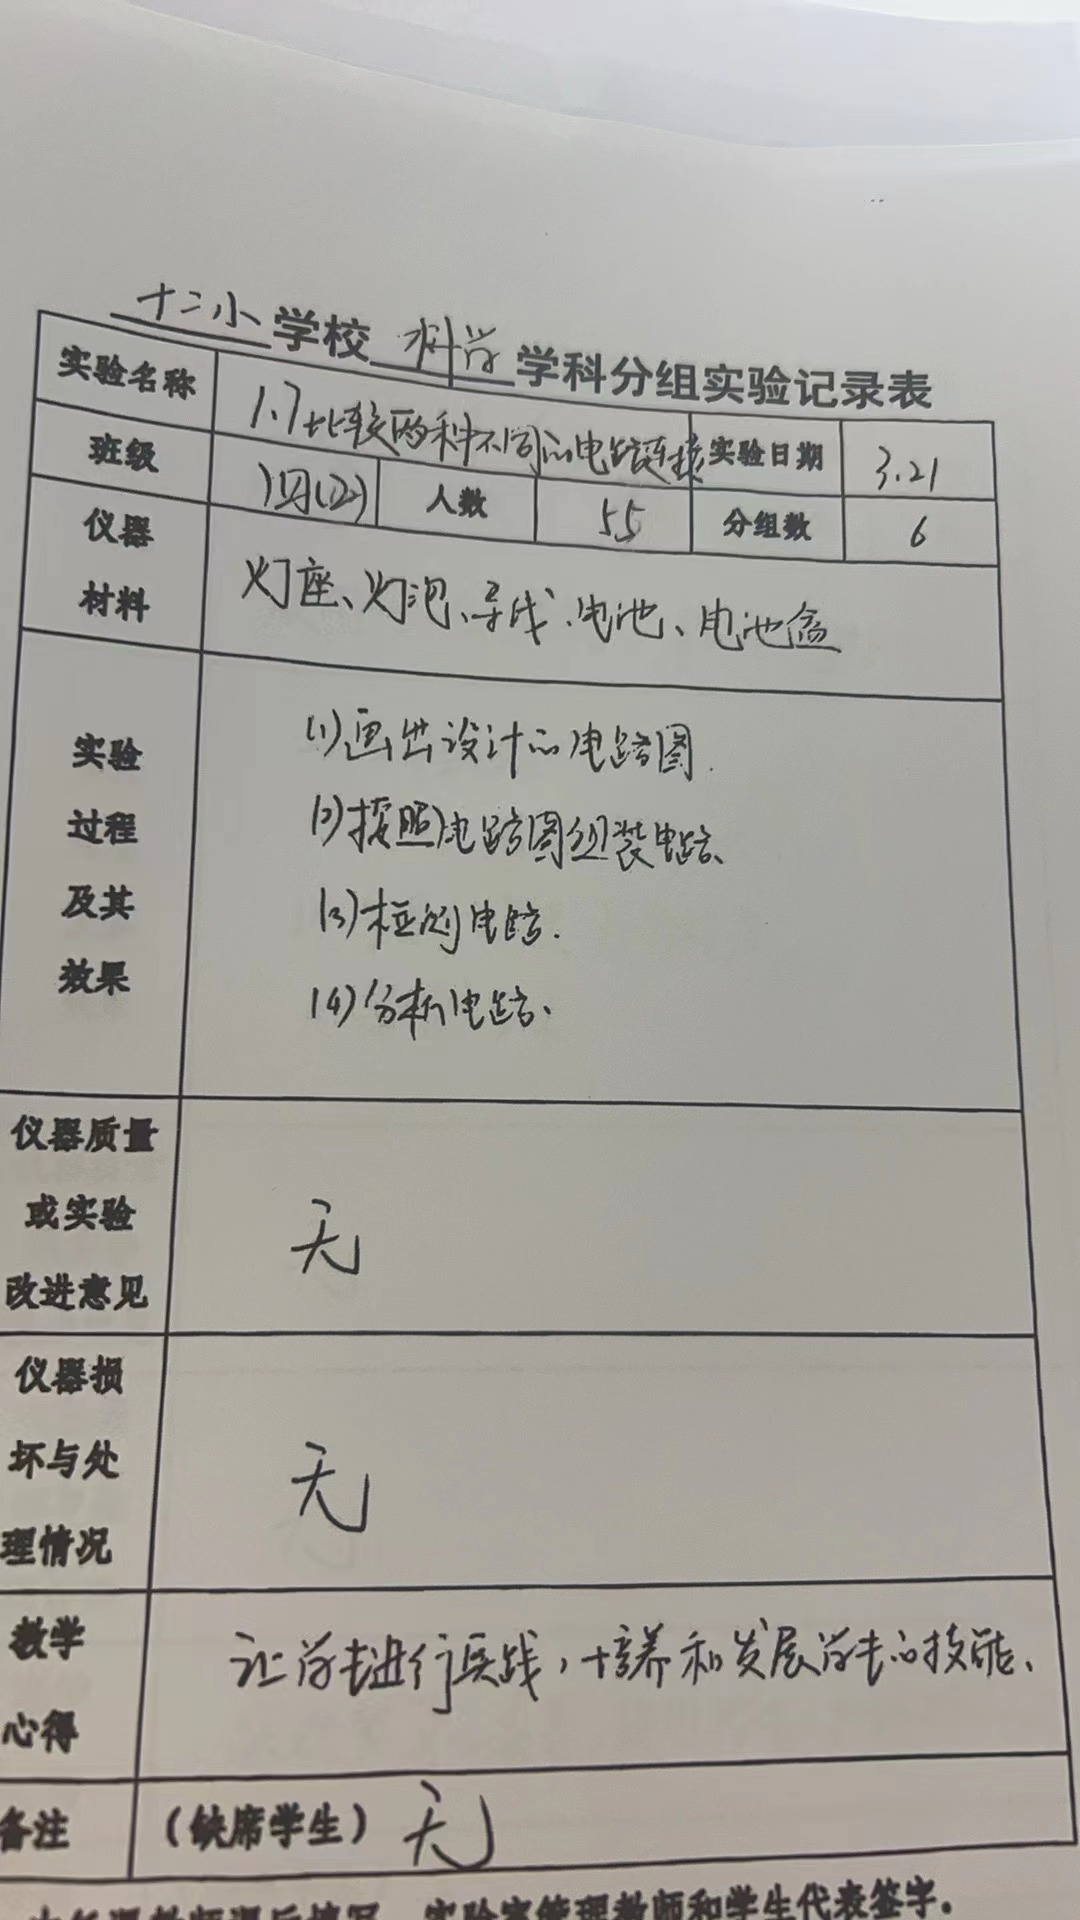 十二小学校 科学 学科分组实验记录表
实验名称 1.7比较两种不同的电路连接 实验日期 3.21
班级 四(2) 人数 55 分组数 6
仪器
材料
灯座、灯泡、导线、电池、电池盒
实验
过程
及其
效果
(1)画出设计的电路图.
(2)按照电路图组装电路、
(3)检测电路.
(4)分析电路、
仪器质量
或实验
改进意见
无
仪器损
坏与处
理情况
无
教学
心得
让学生进行实践，培养和发展学生的技能、
备注 (缺席学生) 无
实验室管理教师和学生代表签字。